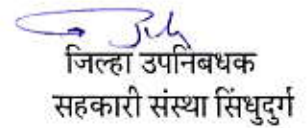 जिल्हा उपनिबधक
सहकारी संस्था सिंधुदुर्ग